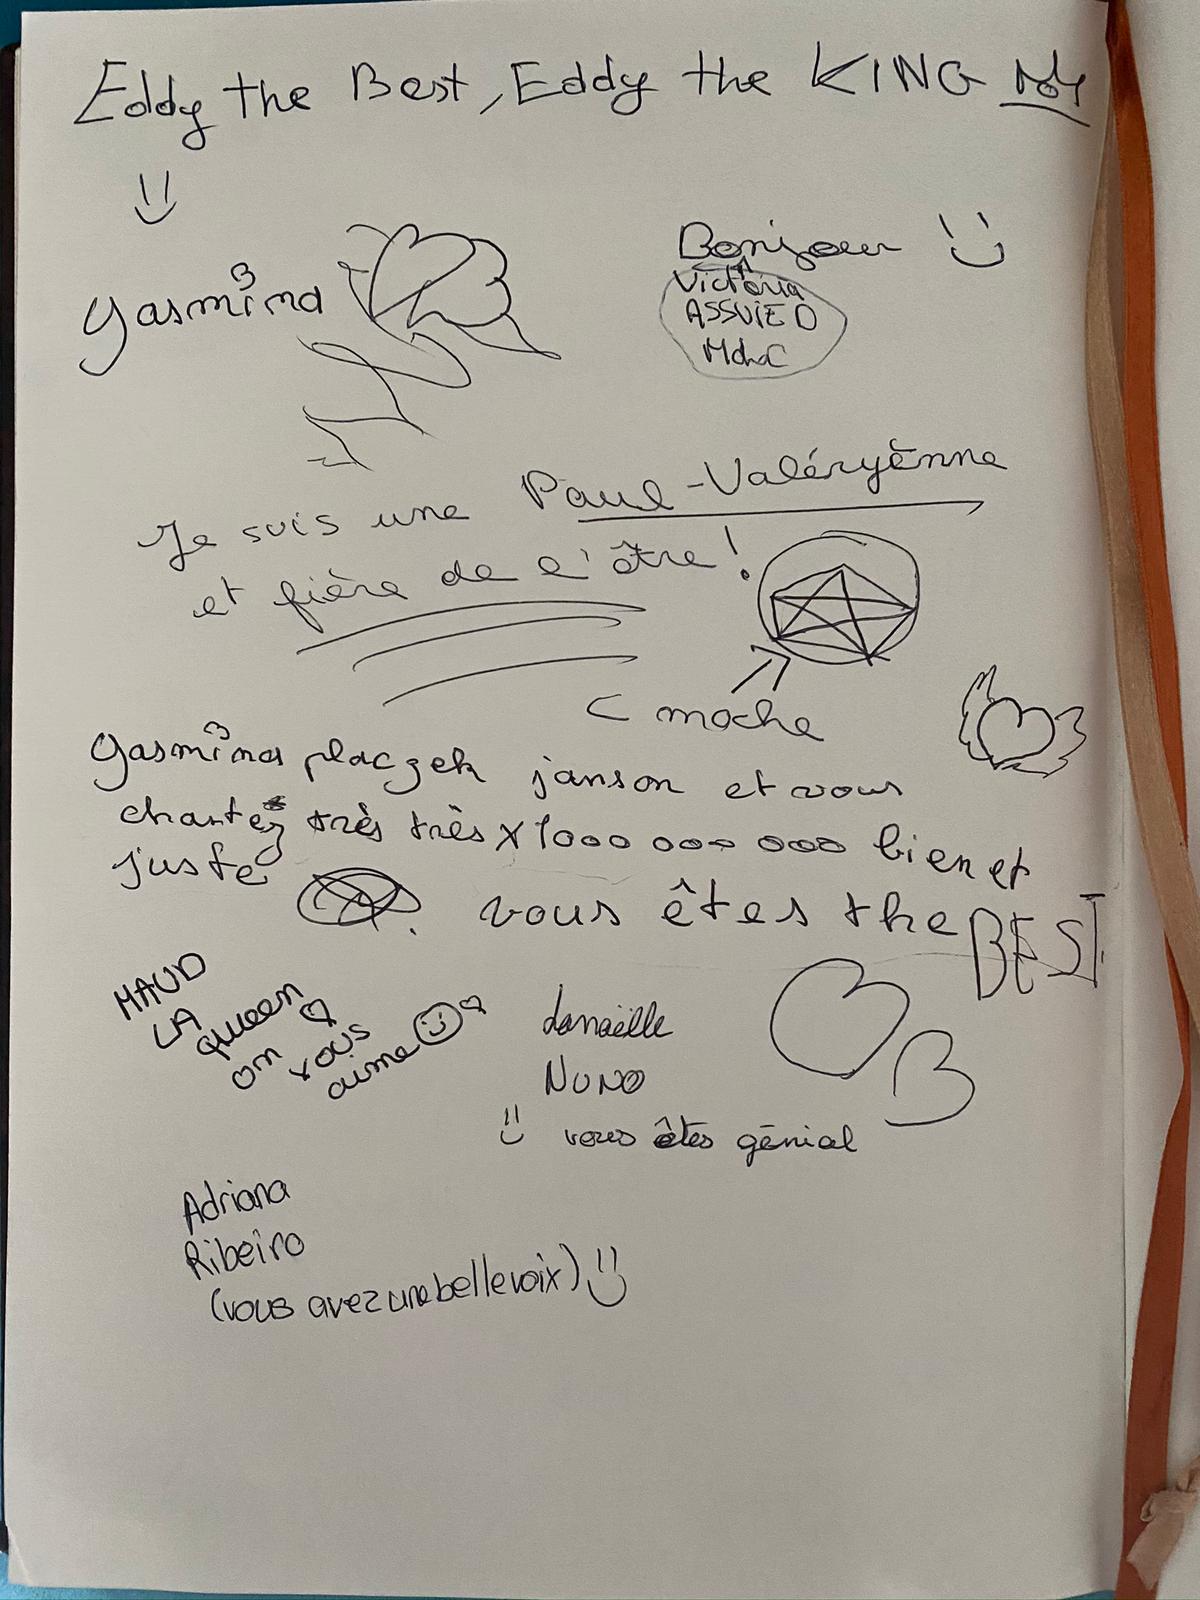 Eddy the Best, Eddy the KING
yasmina
Bonjour
Victoria
ASSUIED
Je suis une Paul-Valéryènne
et fière de l'être !
C moche
yasmina placzek janson et vous
chantez très très x 1000 000 000 bien et
juste
vous êtes the BEST.
MAUD
LA
queen
on vous
aime
danaëlle
NUNO
vous êtes génial
Adriana
Ribeiro
(vous avez une belle voix)